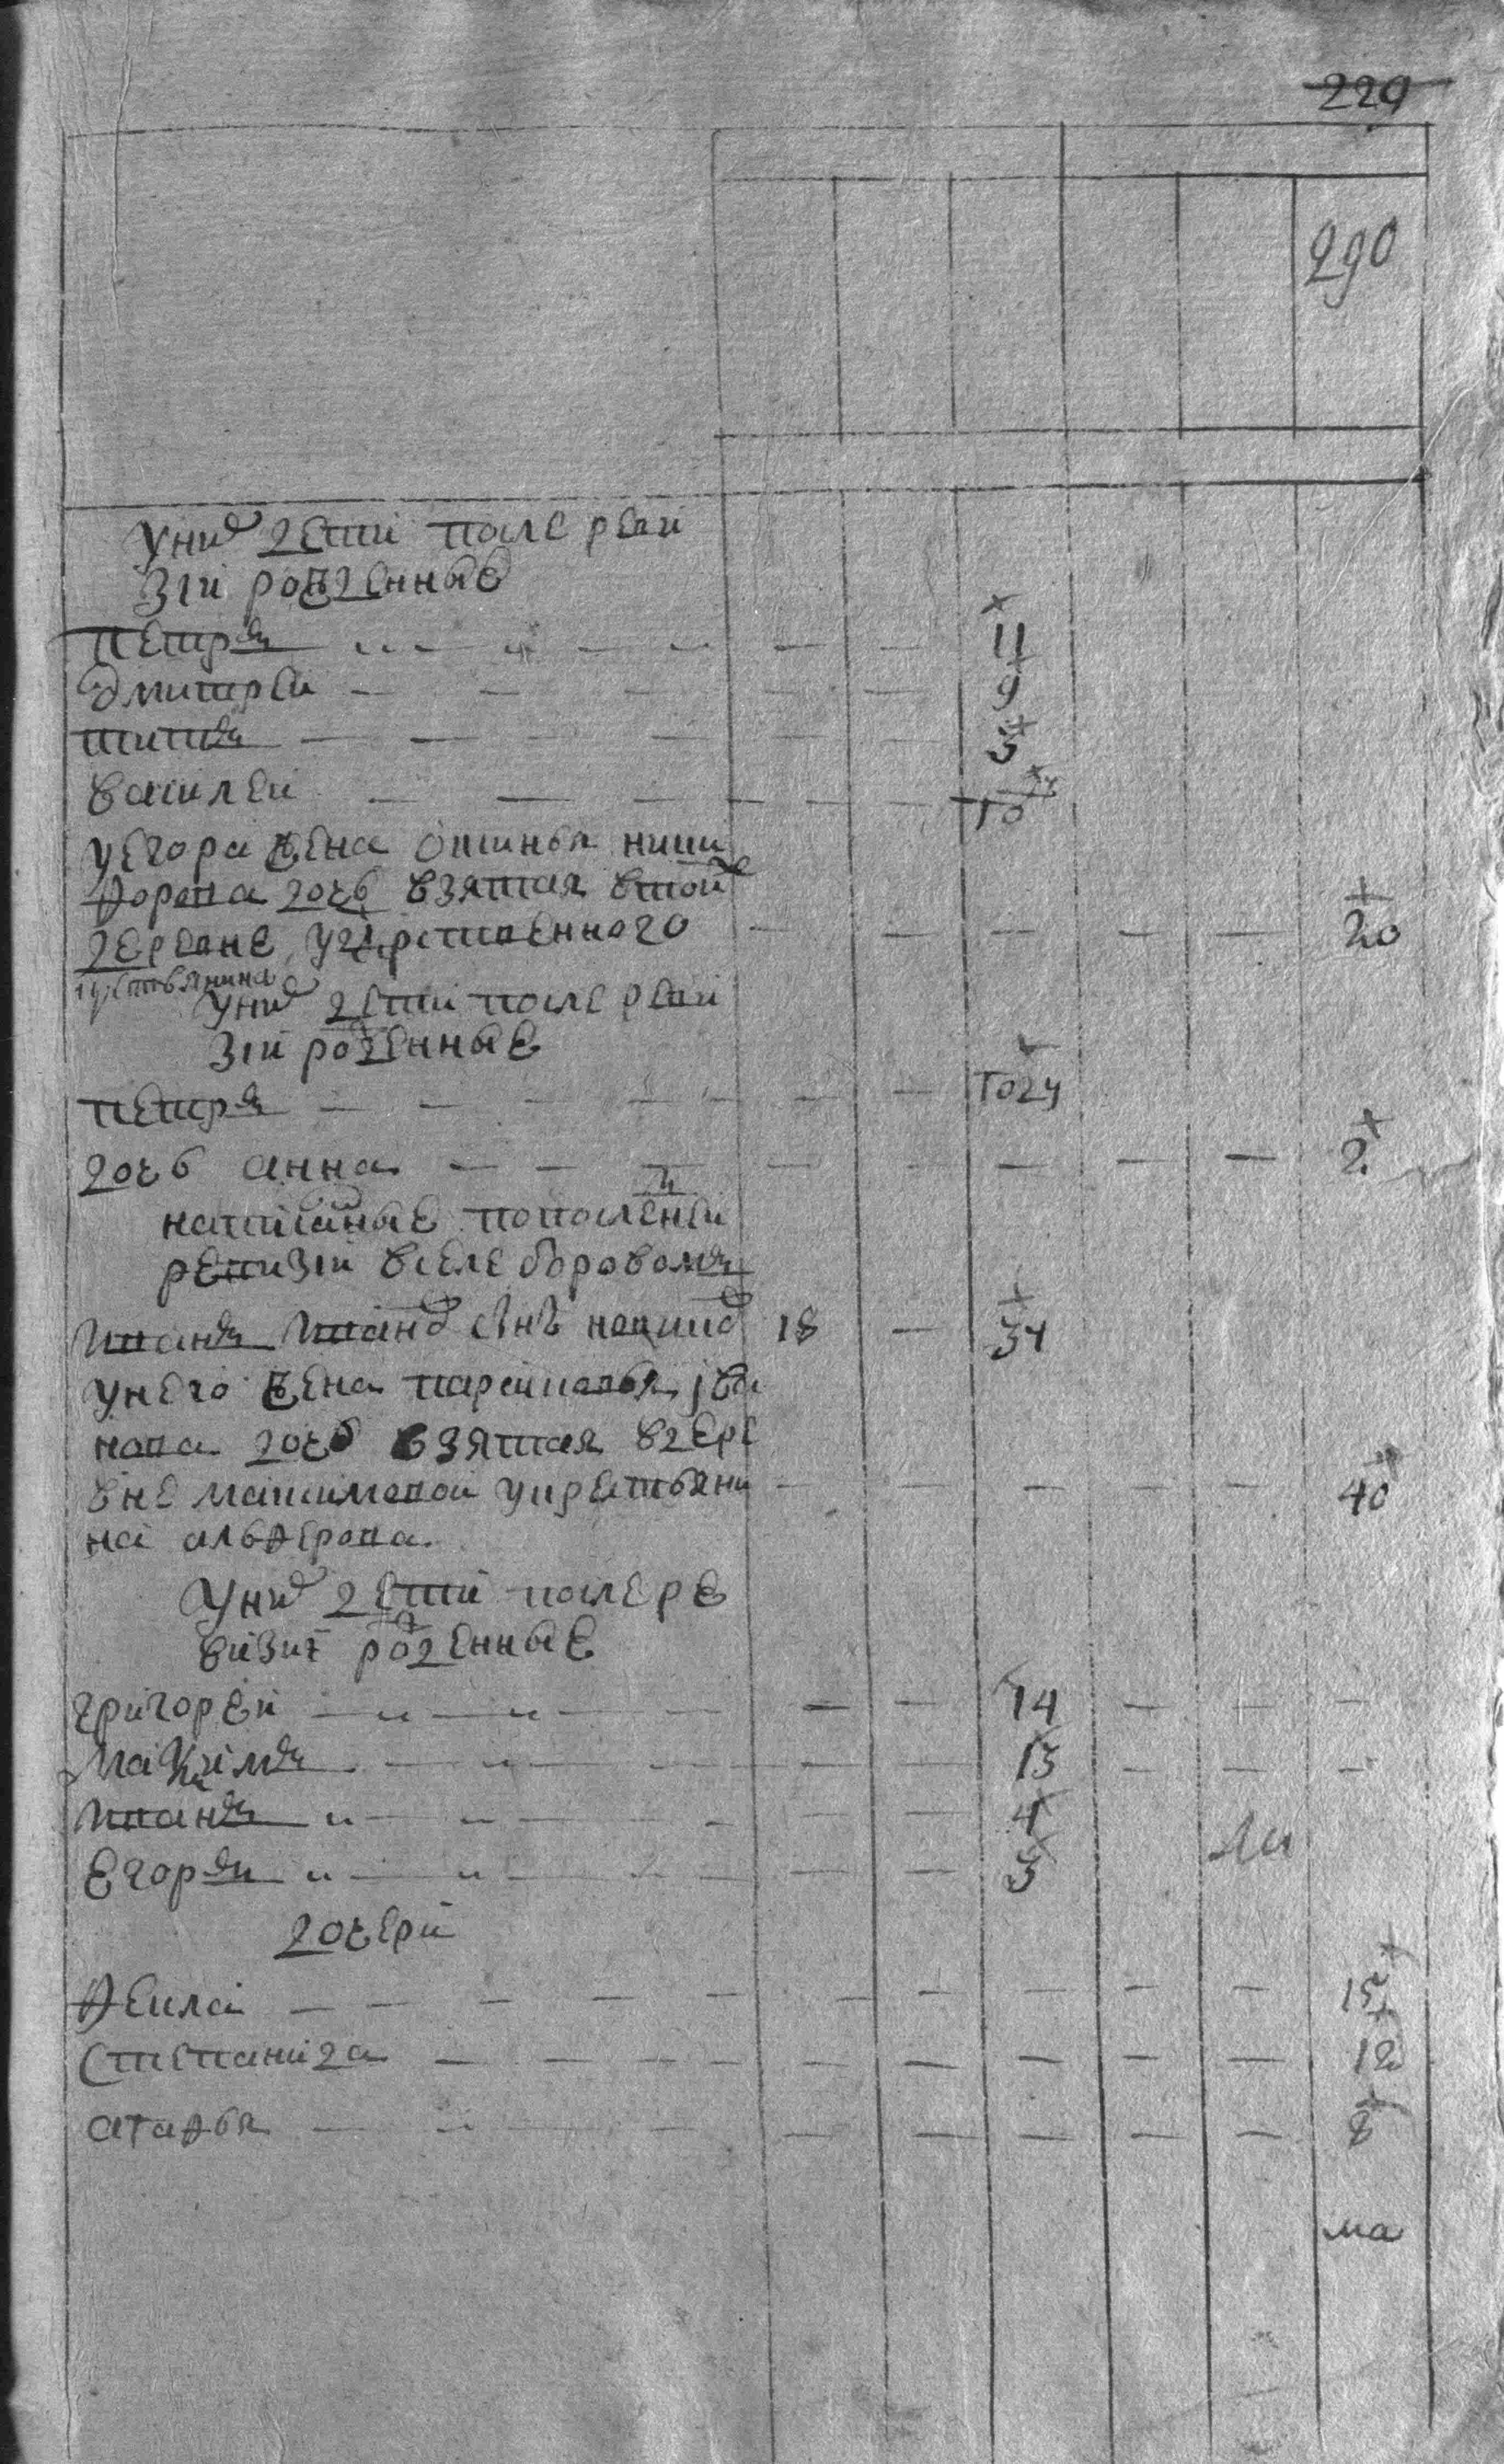 229
290
У них дети после реви
зии рожденные
Петръ 11
Дмитреи 9
Титъ 3
Василеи 10
у Егора жена Ѳ Ники
форова дочь взятая в тои ж
деревне у
крестьянина 20
У них дети после реви
зии рожденные
Петръ году
дочь Анна 2
Написанные по последнеи
ревизии в селе Боровомъ
Иванъ Иванов сын 18 34
у него жена Парасковья Ива
нова дочь взятая в дере
вне Максимовои у крестьяни
на Алферова 40
У них дети после ре
визиї рожденные
Григореи 14
Маѯимъ 13
Иванъ 4
Егоръ 3
дочери
Фекла 15
Степанида 12
Агафья 8
ма